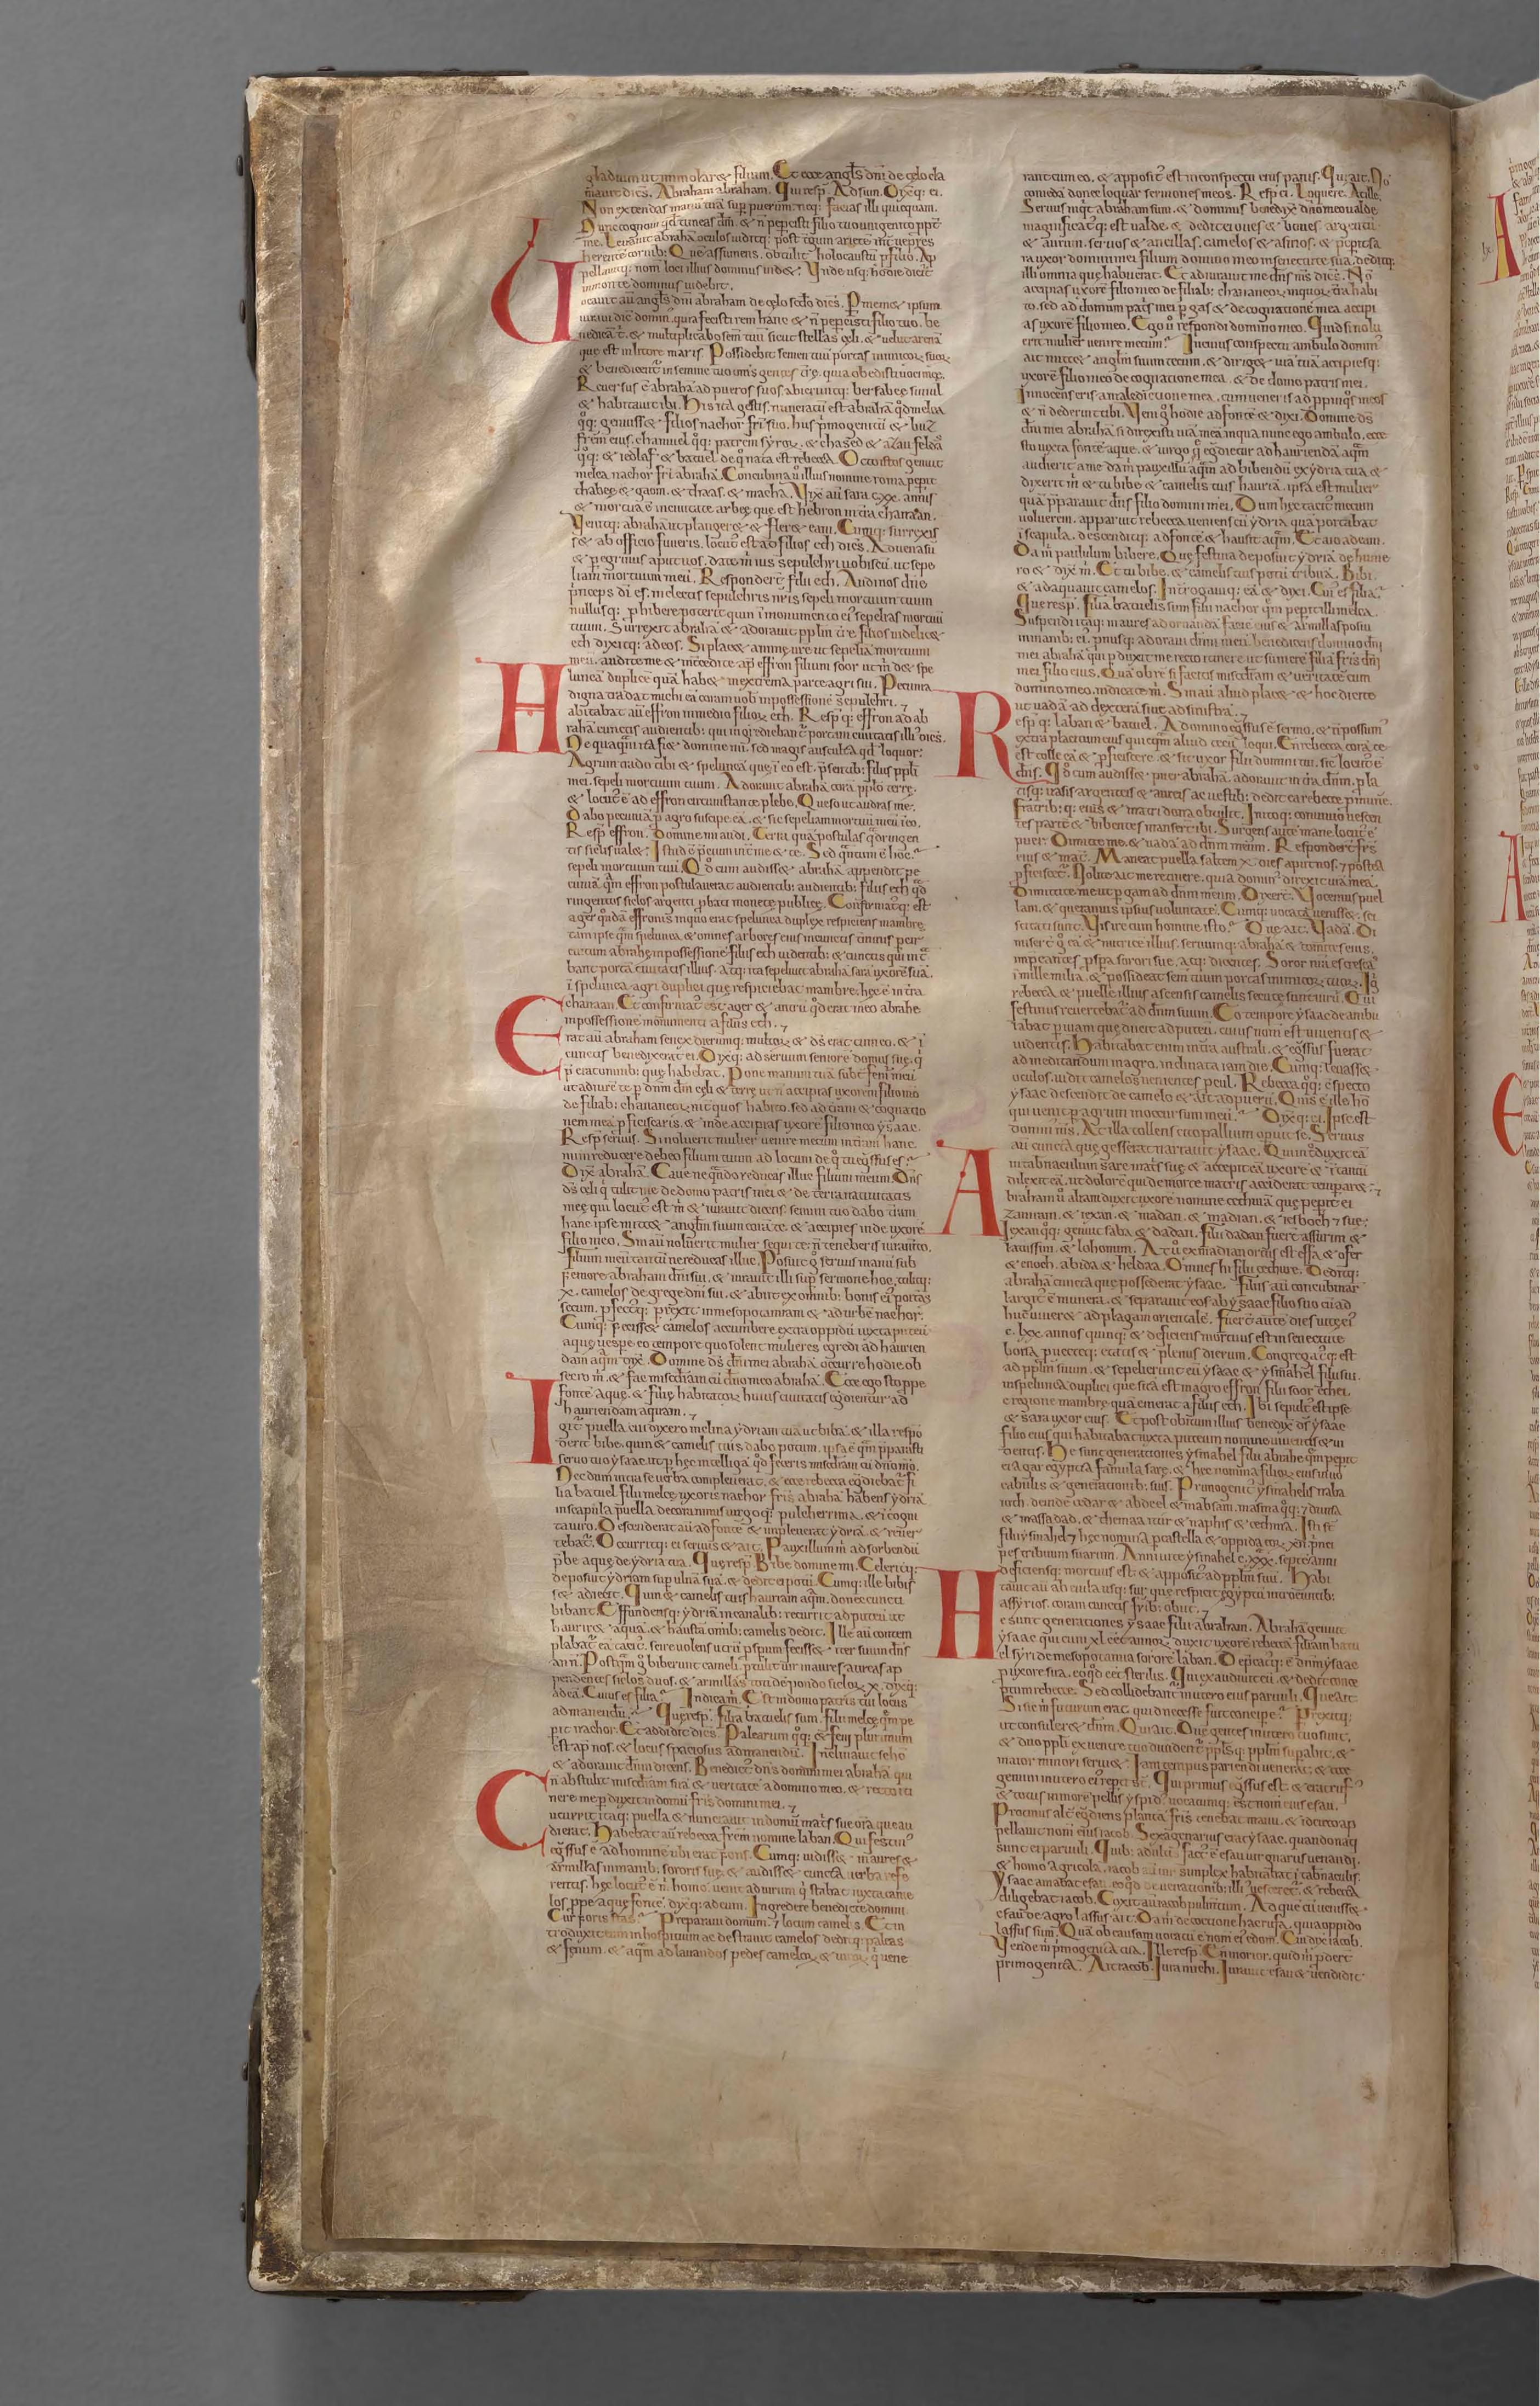 gladium ut immolar& filium. Et ecce angls dni de celo cla
mauit dicens. Abraham abraham. Qui resp. Adsum. Dixq; ei.
Non extendas manu tua sup puerum. neq; facias illi quicquam.
Nunc cognoui qd timeas dm. & n pepcisti filio tuo unigenito ppt
me. Leuauit abraha oculos uiditq; post tgum ariete int uepres
herente cornib; Que assumens. obtulit holocaustu p filio. Ap
pellauitq; nom loci illius dominus uid&. Unde usq; hodie dicit
in monte dominus uidebit.
Uocauit au angls dni abraham de celo scdo dicens. P memet ipsum
iuraui dic domin. quia fecisti rem hanc & n pepcisti filio tuo. be
nedica t. & multiplicabo sem tuu sicut stellas celi. & uelut arena
que est in litore maris. Possidebit semen tuu portas inimicor suor
& benedicent in semine tuo oms gentes tre. quia obedisti uoci mee.
Reuersus e abraha ad pueros suos. abieruntq; bersabee simul
& habitauit ibi. His ita gestis. nuntiatu est abrahe qd melcha
qq; genuiss& filios nachor fri suo. hus pmogenitu & buz
frem eius. chamuel qq; patrem syror. & chased & azau. feldas
qq; & iedlaf & batuel de q nata est rebecca. Octo istos genuit
melca nachor fri abrahe. Concubina u illius nomine roma pepit
thabee & gaom. & thaas. & macha. Uixit au sara cxx. annis
& mortua e in ciuitate arbee que est hebron in tra chanaan.
Uenitq; abraha ut planger& & fler& eam. Cumq; surrexis
s& ab officio funeris. locut est ad filios eth dicens. Aduena su
& pegrinus aput uos. date m ius sepulchri uobiscu. ut sepe
liam mortuum meu. Respondert filii eth. Audi nos dne
princeps di es. in electis sepulchris nris sepeli mortuum tuum
nullusq; phibere poterit quin i monumento ei sepelias mortuu
tuum. Surrexit abraha & adorauit pplm tre. filios uidelic&
eth dixitq; ad eos. Si plac& anime ure ut sepelia mortuum
meu. audite me & intcedite ap effron filium soor ut m d& spe
lunca duplice qua hab& in extrema parte agri sui. Pecunia
digna tradat michi ea coram uob in possessione sepulchri.
Habitabat au effron in medio filior eth. Respq; effron ad ab
raha cunctis audientib; qui ingrediebant portam ciuitatis illi dicens.
Nequaqm ita fi& domine mi. sed magis ausculta qd loquor.
Agrum trado tibi & spelunca que i eo est. psentib; filiis ppli
mei. sepeli mortuum tuum. Adorauit abraha cora pplo terre.
& locut e ad effron circumstante plebe. Queso ut audias me.
Dabo pecunia p agro suscipe ea. & sic sepeliam mortuu meu i eo.
Resp effron. Domine mi audi. Terra qua postulas qdringen
tis siclis ual&. Istud e pcium int me & te. Sed quantum e hoc.
sepeli mortuum tuu. Qd cum audiss& abraha. appendit pe
cunia qm effron postulauerat audientib; audientib; filiis eth qd
ringentos siclos argenti pbati monete publice. Confirmatq; est
ager qnda effronis in quo erat spelunca duplex respiciens mambre.
tam ipse qm spelunca & omnes arbores eius in cunctis tminis peir
cuitum abrahe in possessione. filiis eth uidentib; & cunctis qui int
bant porta ciuitatis illius. Atq; ita sepeliuit abraha sara uxore sua.
i spelunca agri duplici que respiciebat mambre. hec e in tra
chanaan. Et confirmat est ager & antru qd erat in eo abrahe
in possessione monumenti a filiis eth.
Erat au abraham senex dierumq; multor & ds erat cum eo. & i
cunctis benedixerat ei. Dixq; ad seruum seniore domus sue. q
perat omnib; que habebat. Pone manum tua subt femr meu
ut adiure te p dnm dm celi & terre. ut n accipias uxorem filio mo
de filiab; chananeor int quos habito. sed ad tram & cognatio
nem mea pficiscaris. & inde accipias uxore filio meo ysaac.
Resp seruus. Si noluerit mulier uenire mecum in tram hanc.
num reducere debeo filium tuum ad locum de q tu egssus es?
Dix abraha. Caue ne qndo reducas illuc filium meum. Dns
ds celi q tulit me de domo patris mei & de terra natiuitatis
mee. qui locut est m & iurauit dicens. semini tuo dabo tram
hanc. ipse mitt& anglm suum cora te. & accipies inde uxore
filio meo. Sin au noluerit mulier sequi te. n teneberis iuramto.
filium meu tantu ne reducas illuc. Posuit g seruus manu sub
femore abraham dni sui. & iurauit illi sup sermone hoc. tulitq;
x. camelos de grege dni sui. & abiit ex omnib; bonis ei portans
secum. pfectq; prexit in mesopotamiam & ad urbe nachor.
Cumq; feciss& camelos accumbere extra oppidu iuxta puteu
aque uespe. eo tempore quo solent mulieres egredi ad haurien
dam aqm dix. Domine ds dni mei abraha occurre hodie ob
secro m. & fac miscdiam cu dno meo abraha. Ecce ego sto ppe
fonte aque. & filie habitator huius ciuitatis egdientur ad
hauriendam aquam.
Igit puella cui dixero inclina ydriam tua ut biba. & illa respo
derit bibe. quin & camelis tuis dabo potum. ipsa e qm pparasti
seruo tuo ysaac. ut p hec intelliga qd feceris miscdiam cu dno mo.
Necdum intra se uerba compleuerat. & ecce rebecca egdiebat fi
lia batuel filii melce uxoris nachor fris abraha habens ydria
in scapula. puella decora nimis uirgoq; pulcherrima. & i cogni
ta uiro. Descenderat au ad fonte & impleuerat ydria. & reuer
tebat. Occurritq; ei seruus & ait. Pauxillum m ad sorbendu
pbe aque de ydria tua. Que resp. Bibe domine mi. Celeritq;
deposuit ydriam sup ulna sua. & dedit ei potu. Cumq; ille bibis
s& adiecit. Quin & camelis tuis hauriam aqm. donec cuncti
bibant. Effundensq; ydria in canalib; recurrit ad puteu ut
haurir& aqua. & hausta omib; camelis dedit. Ille au contem
plabat ea tacit. scire uolens utru pspum feciss& iter suum dns
an n. Postqm g biberunt cameli. ptulit uir inaures aureas ap
pendentes siclos duos. & armillas toti de pondo siclor x. dixq;
ad ea. Cuius es filia? Indica m. Est in domo patris tui locus
ad manendu? Que resp. Filia batuelis sum. filii melce qm pe
pit nachor. Et addidit dicens. Palearum qq; & feni plurimum
est ap nos. & locus spaciosus ad manendu. Inclinauit se ho
& adorauit dnm dicens. Benedict dns domini mei abraha. qui
n abstulit miscdiam sua & ueritate a domino meo. & recto iti
nere me pduxit in domu fris domini mei.
Cucurrit itaq; puella & nuntiauit in domu matris sue oia que au
dierat. Habebat au rebecca frem nomine laban. Qui festin
egssus e ad homine ubi erat fons. Cumq; uidiss& inaures &
armillas in manib; sororis sue. & audiss& cuncta uerba refe
rentis. hec locut e m homo. uenit ad uirum q stabat iuxta came
los ppe aque fonte. dixq; ad eum. Ingredere benedicte domini.
Cur foris stas? Preparaui domum. & locum camelis. Et in
troduxit eum in hospitium ac destrauit camelos. deditq; paleas
& fenum. & aqm ad lauandos pedes camelor & uiror q uene
rant cum eo. & apposit est in conspectu eius panis. Qui ait. No
comeda donec loquar sermones meos. Resp ei. Loquere. At ille.
Seruus inqt abraham sum. & dominus benedix dno meo ualde
magnificatq; est ualde. & dedit ei oues & boues. argentu
& aurum. seruos & ancillas. camelos & asinos. & pepit sa
ra uxor domini mei filium domino meo in senectute sua. deditq;
illi omnia que habuerat. Et adiurauit me dns ms dicens. No
accipias uxore filio meo de filiab; chananeor in quor tra habi
to. sed ad domum patris mei pgas & de cognatione mea accipi
as uxore filio meo. Ego u respondi domino meo. Quid si nolu
erit mulier uenire mecum? In cuius conspectu ambulo domin
ait mitt& anglm suum tecum. & dirig& uia tua. accipiesq;
uxore filio meo de cognatione mea. & de domo patris mei.
Innocens eris a maledictione mea. cum ueneris ad ppinqs meos
& n dederint tibi. Veni g hodie ad fonte & dixi. Domine ds
dni mei abraha. si direxisti uia mea in qua nunc ego ambulo. ecce
sto iuxta fonte aque. & uirgo q egdietur ad haurienda aqm
audierit a me da m pauxillu aqm ad bibendu ex ydria tua &
dixerit m & tu bibe & camelis tuis hauria. ipsa est mulier
qua pparauit dns filio domini mei. Dum hec tacit mecum
uoluerem. apparuit rebecca ueniens cu ydria qua portabat
i scapula. descenditq; ad fonte & hausit aqm. Et aio ad eam.
Da m paululum bibere. Que festina deposuit ydria de hume
ro & dix m. Et tu bibe. & camelis tuis potu tribua. Bibi
& adaquauit camelos. Introgauiq; ea & dixi. Cui es filia?
Que resp. Filia batuelis sum filii nachor qm pepit illi melca.
Suspendi itaq; inaures ad ornanda facie eius & armillas posui
in manib; ei. pnusq; adoraui dnm meu. benedicens domino dni
mei abraha. qui pduxit me recto itinere ut sumere filia fris dni
mei filio eius. Qua obre si facitis miscdiam & ueritate cum
domino meo. indicate m. Sin au aliud plac& & hoc dicite
ut uada ad dextera siue ad sinistra.
Respq; laban & batuel. A domino egssus e sermo. & n possum
extra placitum eius quicqm aliud tecu loqui. En rebecca cora te
est. tolle ea & pficiscere. & sit uxor filii domini tui. sic locut e
dns. Qd cum audiss& puer abraha. adorauit in tra dnm. pla
tisq; uasis argenteis & aureis ac uestib; dedit ea rebecce p munere.
Fratrib; q; eius & matri dona obtulit. Initoq; conuiuio uescen
tes parit & bibentes manserut ibi. Surgens aute mane. locut e
puer. Dimitte me. & uada ad dnm meum. Respondert frs
eius & mat. Maneat puella saltem x. dies aput nos. & postea
pficiscet. Nolite ait me retinere. quia domin direxit uia mea.
Dimittite me ut pgam ad dnm meum. Dixert. Uocemus puel
lam. & queramus ipsius uoluntate. Cumq; uocata ueniss&. sci
scitati sunt. Vis ire cum homine isto? Que ait. Uada. Di
misert g ea & nutrice illius. seruumq; abraha & comites eius.
impcantes pspa sorori sue. atq; dicentes. Soror nra es cresca
i mille milia. & possideat sem tuum portas inimicor suor. Ig
rebecca & puelle illius ascensis camelis secute sunt uiru. Qui
festinus reuertebat ad dnm suum. Eo tempore ysaac deambu
labat p uiam que ducit ad puteu. cuius nom est uiuentis &
uidentis. Habitabat enim in tra australi. & egssus fuerat
ad meditandum in agro. inclinata iam die. Cumq; leuass&
oculos. uidit camelos uenientes pcul. Rebecca qq; cspecto
ysaac descendit de camelo & ait ad pueru. Quis e ille ho
qui uenit p agrum in occursum meu? Dixq; ei. Ipse est
domin ms. At illa tollens cito pallium opuit se. Seruus
au cuncta que gesserat narrauit ysaac. Qui introduxit ea
in tabnaculum sare matris sue & accepit ea uxore & i tantu
dilexit ea. ut dolore qui de morte matris acciderat temperar&.
Abraham u aliam duxit uxore nomine cethura. que pepit ei
zamram. & iexan. & madan. & madian. & iesboch & sue.
Iexan qq; genuit saba & dadan. Filii dadan fuert assurim &
latussim. & lohomim. At u ex madian ortus est effa & ofer
& enoch. abida & heldaa. Omnes hi filii cethure. Deditq;
abraha cuncta que possederat ysaac. Filiis au concubinar
largit e munera. & separauit eos ab ysaac filio suo cu ad
huc uiuer& ad plagam orientale. Fuert aute dies uite ei
c. lxx. annos quinq; & deficiens mortuus est in senectute
bona puecteq; etatis & plenus dierum. Congregatq; est
ad pplm suum. & sepelierunt eu ysaac & ysmahel filii sui.
in spelunca duplici que sita est in agro effron filii soor ethei.
e regione mambre qua emerat a filiis eth. Ibi sepult est ipse
& sara uxor eius. Et post obitum illius benedix ds ysaac
filio eius qui habitabat iuxta puteum nomine uiuentis & ui
dentis. He sunt generationes ysmahel filii abrahe qm pepit
ei agar egyptia famula sare. & hec nomina filior eius in uo
cabulis & generationib; suis. Primogenit ysmahelis naba
ioth. deinde cedar & abdeel & mabsam. masma qq; & duma
& massa. dad. & thema. itur & naphis & cedma. Isti st
filii ysmahel. & hec nomina p castella & oppida eor. xii. princi
pes tribuum suarum. Anni uite ysmahel c. xxx. septe anni
deficiensq; mortuus est & apposit ad pplm suu. Habi
tauit au ab euila usq; sur. que respicit egyptu introeuntib;
assyrios. coram cunctis frib; obiit.
He sunt generationes ysaac filii abraham. Abraha genuit
ysaac. qui cum xl. eet annor. duxit uxore rebecca filiam batu
el syri de mesopotamia sorore laban. Depcatq; e dnm ysaac
p uxore sua. eo qd eet sterilis. Qui exaudiuit eu. & dedit conce
ptum rebecce. Sed collidebant in utero eius paruuli. Que ait.
Si sic m futurum erat. quid necesse fuit concipe? Prexitq;
ut consuler& dnm. Qui ait. Due gentes in utero tuo sunt.
& duo ppli ex uentre tuo diuident. pplsq; pplm supabit. &
maior minori seruiet. Iam tempus pariendi uenerat. & ecce
gemini in utero ei repti st. Qui primus egssus est. & erat ruf
& totus in more pellis yspid. uocatumq; est nom eius esau.
Protinus alt egdiens planta fris tenebat manu. & idcirco ap
pellauit nom eius iacob. Sexagenarius erat ysaac. quando nati
sunt ei paruuli. Quib; adultis fact e esau uir gnarus uenandi.
& homo agricola. iacob au uir simplex habitabat i tabnaculis.
Ysaac amabat esau. eo qd de uenationib; illi uesceret. & rebecca
diligebat iacob. Coxit au iacob pulmtum. Ad que cu ueniss&
esau de agro lassus ait. Da m de coctione hac rufa. quia oppido
lassus sum. Qua ob causam uocatu e nom ei edom. Cui dix iacob.
Uende m pmogenita tua. Ille resp. En morior. quid m pdert
primogenita? Ait iacob. Iura michi. Iurauit esau & uendidit